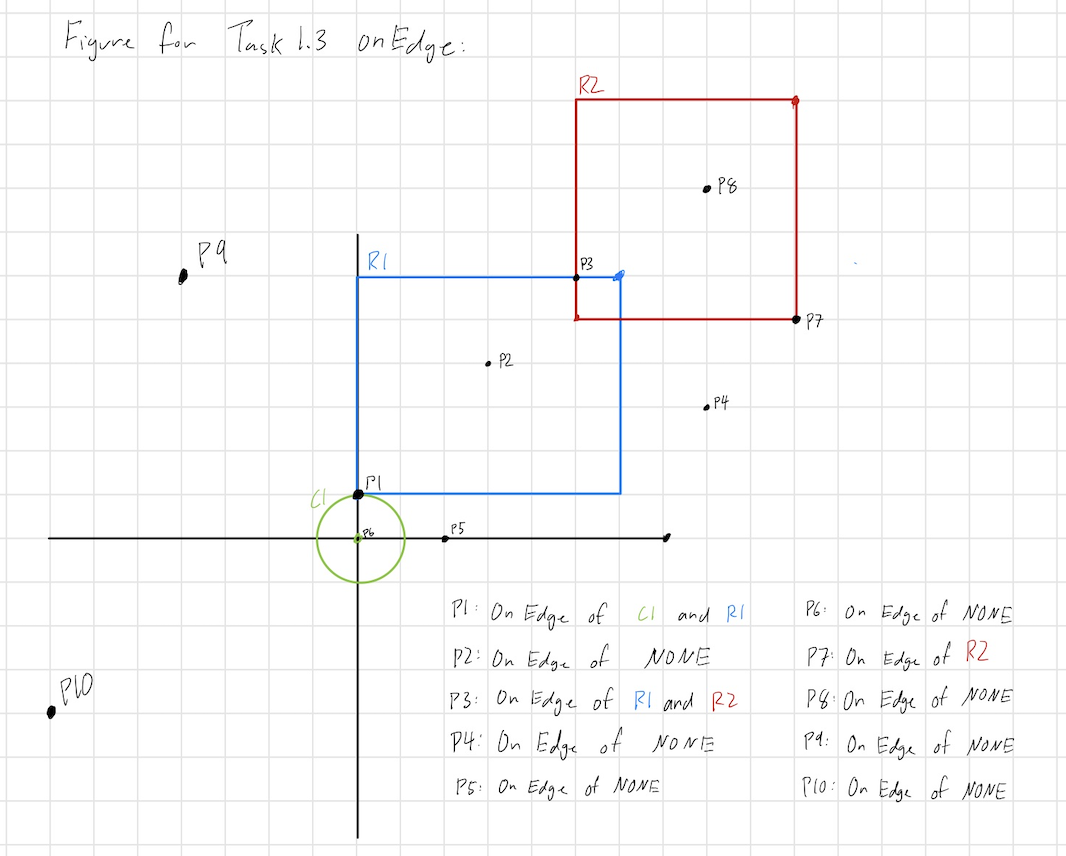 Figure for Task 1.3 onEdge:
R2
P8
P9
R1
P3
P7
P2
P4
C1
P1
P6
P5
P1: On Edge of C1 and R1
P2: On Edge of NONE
P3: On Edge of R1 and R2
P4: On Edge of NONE
P5: On Edge of NONE
P6: On Edge of NONE
P7: On Edge of R2
P8: On Edge of NONE
P9: On Edge of NONE
P10: On Edge of NONE
P10